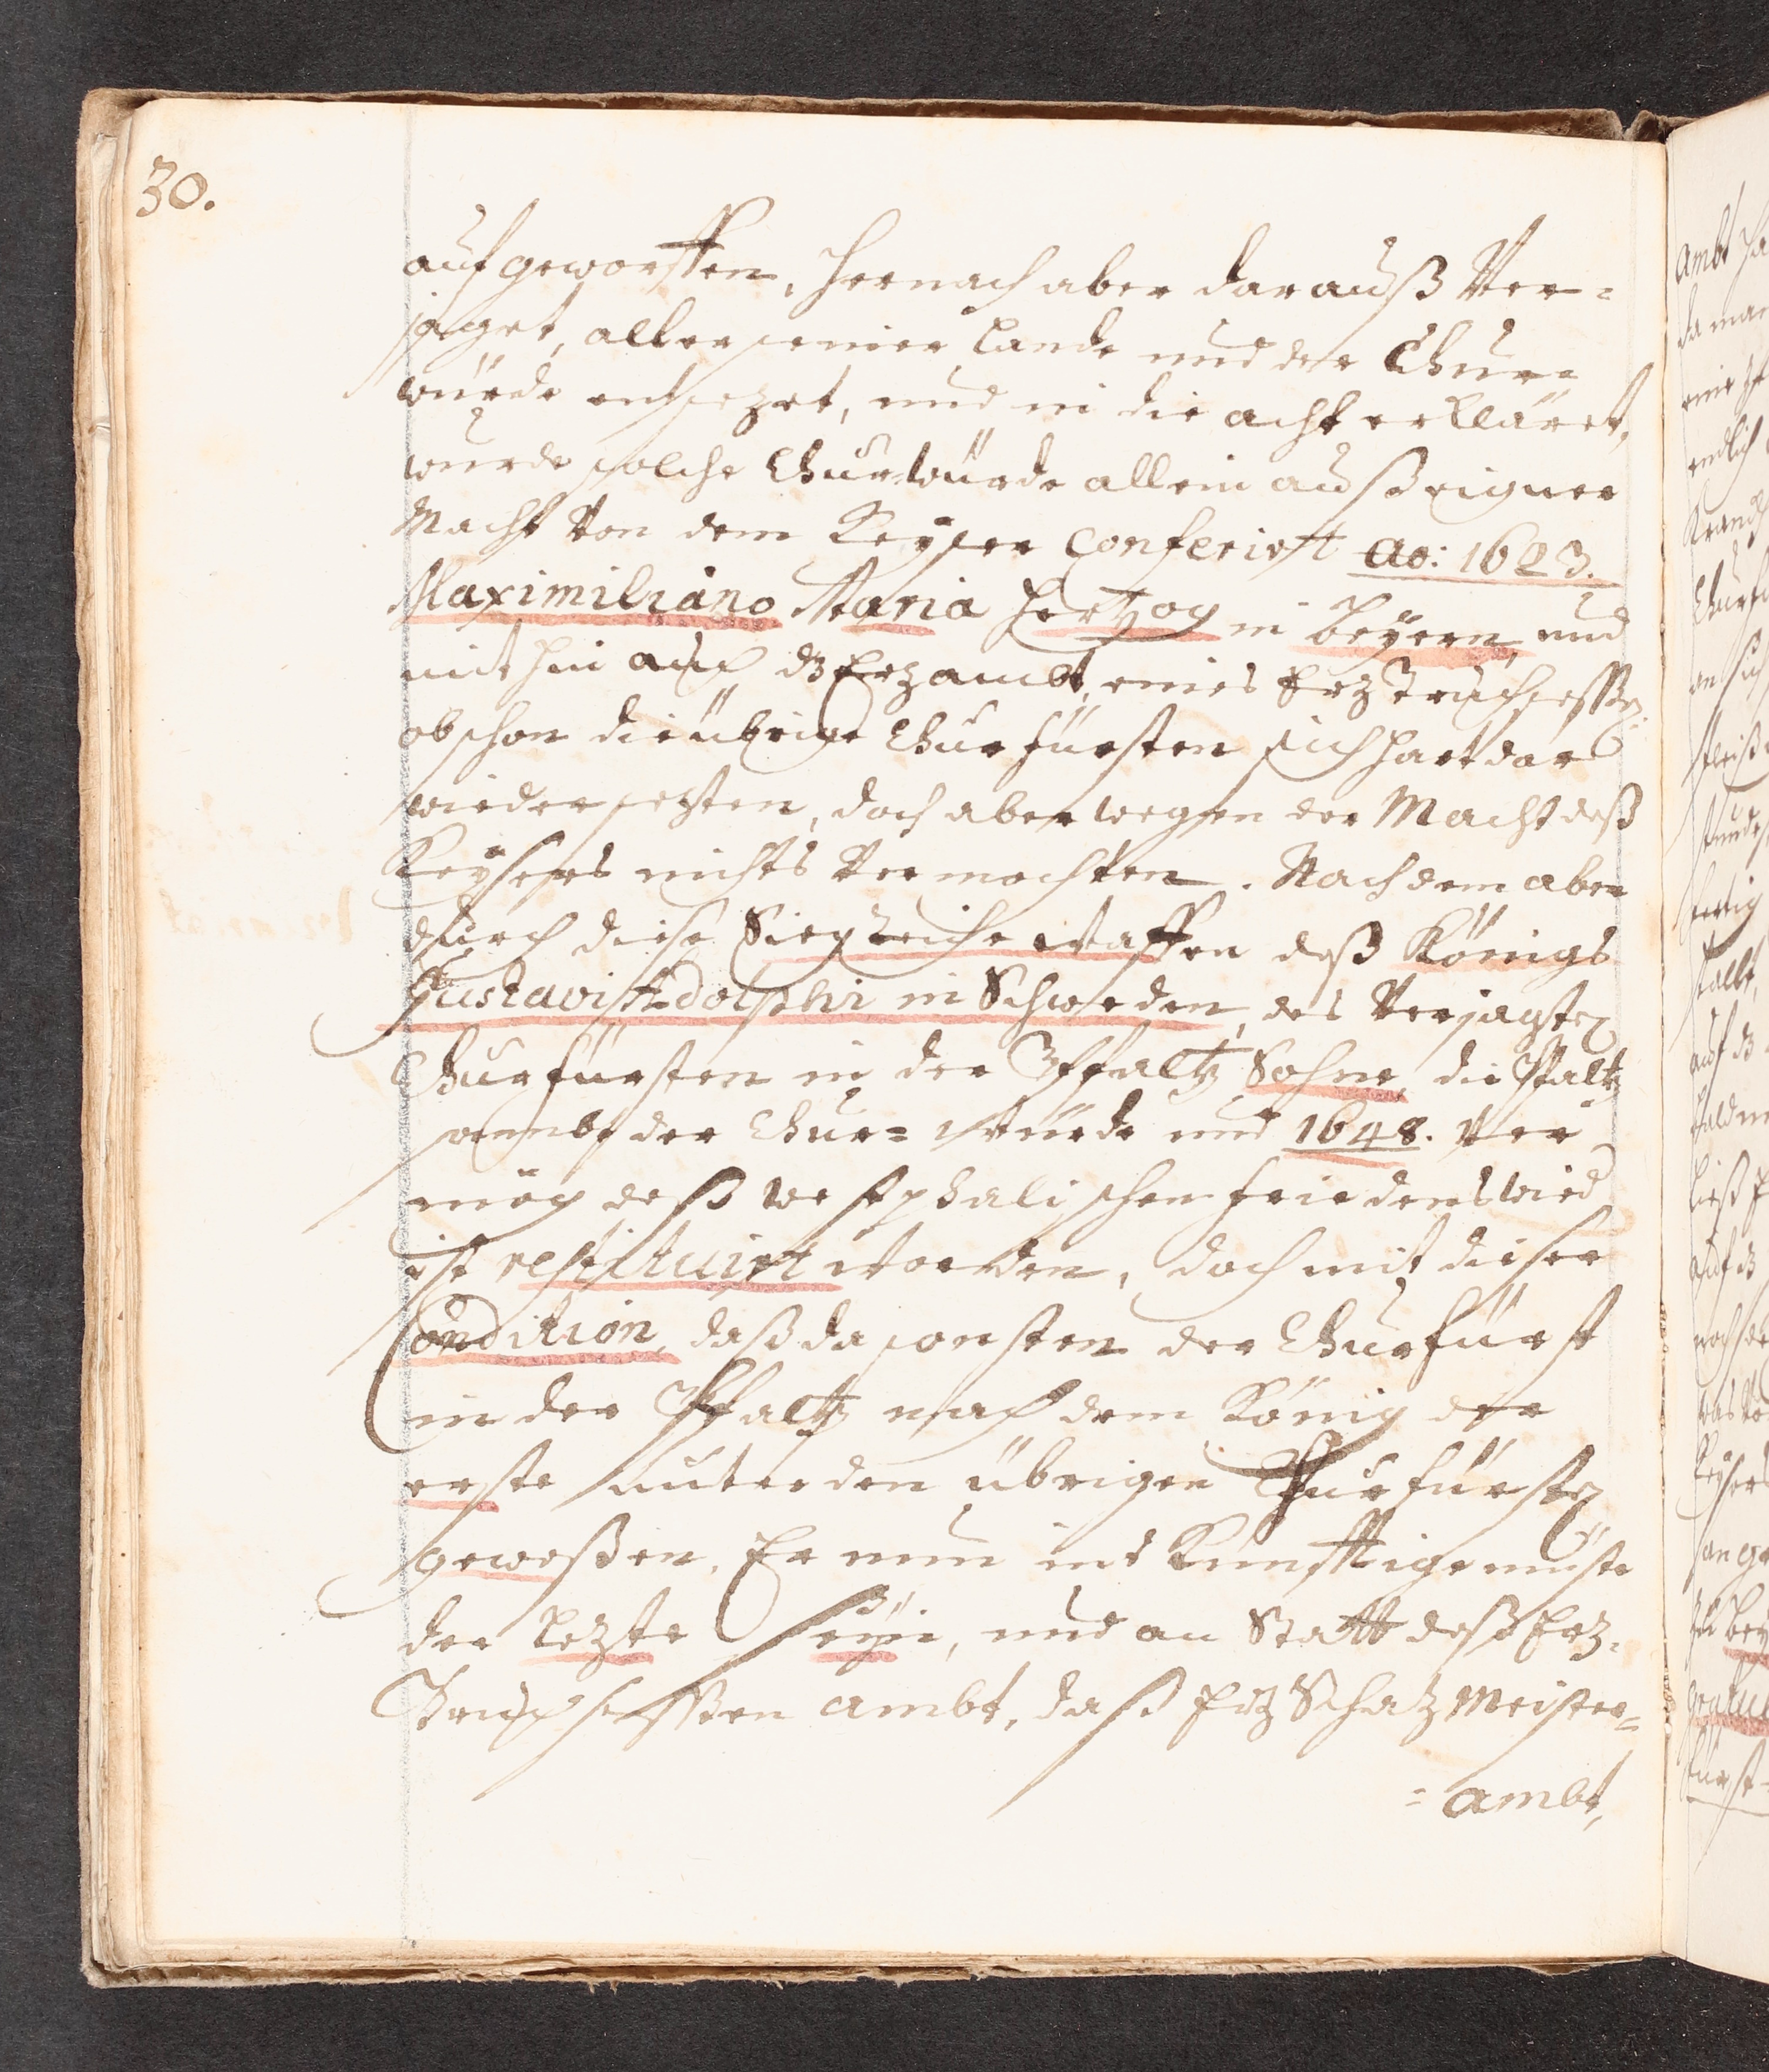 30.
aufgeworffen, hernach aber darauß Ver=
jaget, aller seiner Lande und der Chur=
würde entsezet, und in die acht erkläret,
wurde solche Churwürde allein auß eigner
Macht Von dem Keyser Conferirt ao: 1623.
Maximiliano Maria Hertzog in Beyern, und
mit hin auch dz Erzambt, eines Erz Truchsessen
obschon die übrige Churfürsten sich hart dar
wieder sezten, doch aber wegen der Macht deß
Keysers nichts Vermochten. Nach dem aber
durch diese Siegreiche Waffen deß Königs
Gustavi Adolphi in Schweden, des Verjagten
Churfürsten in der Pfaltz Sohne, die Pfaltz
sambt der Chur= Würde und 1648. Ver
mög deß westphalischen friedens wied
ist restituirt worden, doch mit dieser
Condition, daß da sonsten der Churfürst
in der Pfaltz nach dem König der
erste unter den übrigen Churfürsten
geweßen, Er nun ins Künfftige müste
der Lezte seyn, und an Statt deß Erz=
Truchsessen ambt, daß Erz Schaz Meister=
=ambt,